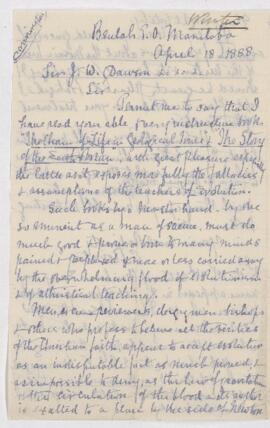 Beulah P.O. Manitoba
April 18 1888
Sir J. W. Dawson
Sir
Permit me to say that I
have read your able & very instructive books
The Chain of Life in Geological time & The Story
of the Earth & Man, with great pleasure especially
the latter as it exposes mas fully the fallacies
& assumptions of the teachers of evolution.
Such books by a master hand, by one
so eminent as a man of science, must do
much good & prove a boon to many minds
pained & perplexed & more or less carried away
by the overwhelming flood of evolutionism
& of atheistical teaching.
Men, reviewers, clergymen, bishops
& others who profess to believe all the verities
of the Christian faith, appear to accept evolution
as an indisputable fact as much proved, &
as impossible to deny, as the law of gravitation
or the circulation of the blood & its author
is exalted to a place by the side of Newton